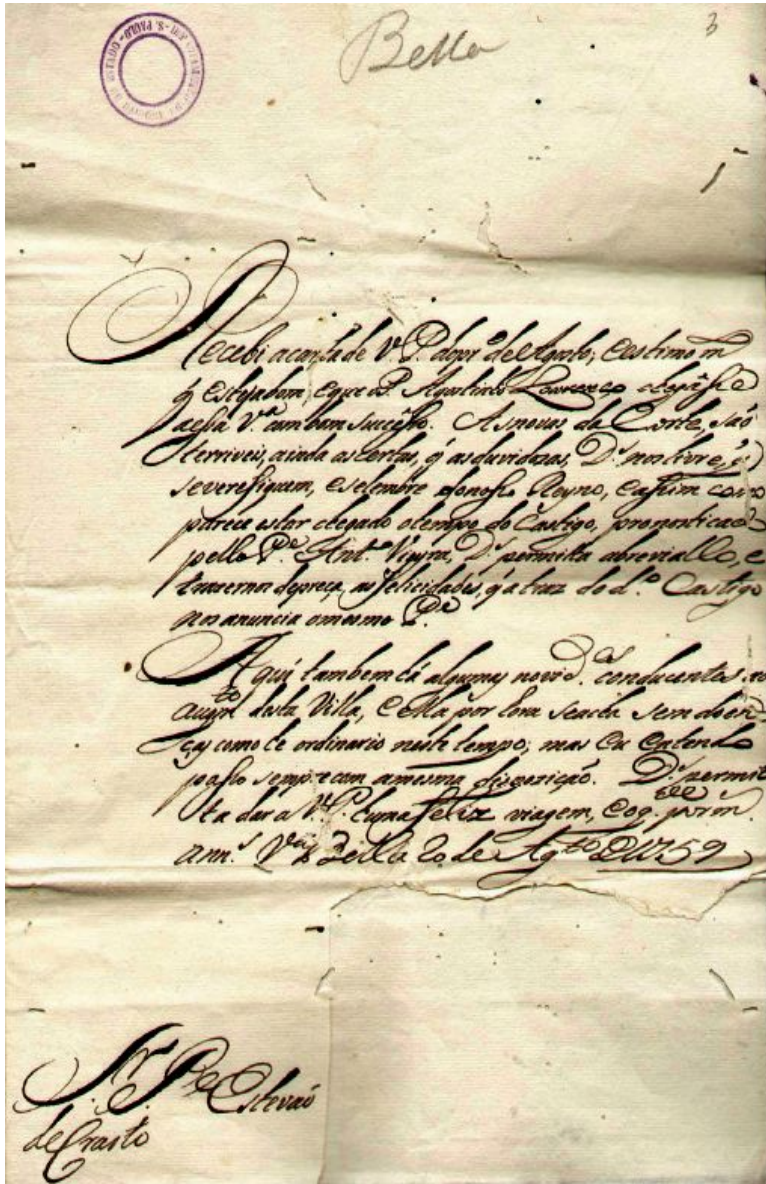 Bella
3
Recebi a carta de V. P. do pr.º de Agosto; e estimo m
q̃ esteja bom, e que o P. Agostinho Lourenço chegasse
a essa V.ª com bom sucesso. As novas da Corte, são
terriveis, ainda as certas, q̃ as duvidozas, D.s nos livre, q̃
se verefiquem, e se lembre do nosso Reyno, e assim como
parece estar chegado o tempo do Castigo, pronosticado
pello P.e Ant.º Vieyra, D.s permita abreviallo, e
trazernos depreça as felicidades, q̃ a traz do d.º Castigo
nos anuncia o mesmo P.e
Aqui tambem há algumas novid.es conducentes ao
augm.to desta Villa, e ella por hora se acha sem doen-
ças como he ordinario neste tempo, mas eu
passo sempre com a mesma despozição. D.s permit
ta dar a V. P. huma feliz viagem, e o g.e por m.
ann.s V.ª Bella 20 de Ag.to de 1759
Sr. P.e Estevaõ
de Crasto